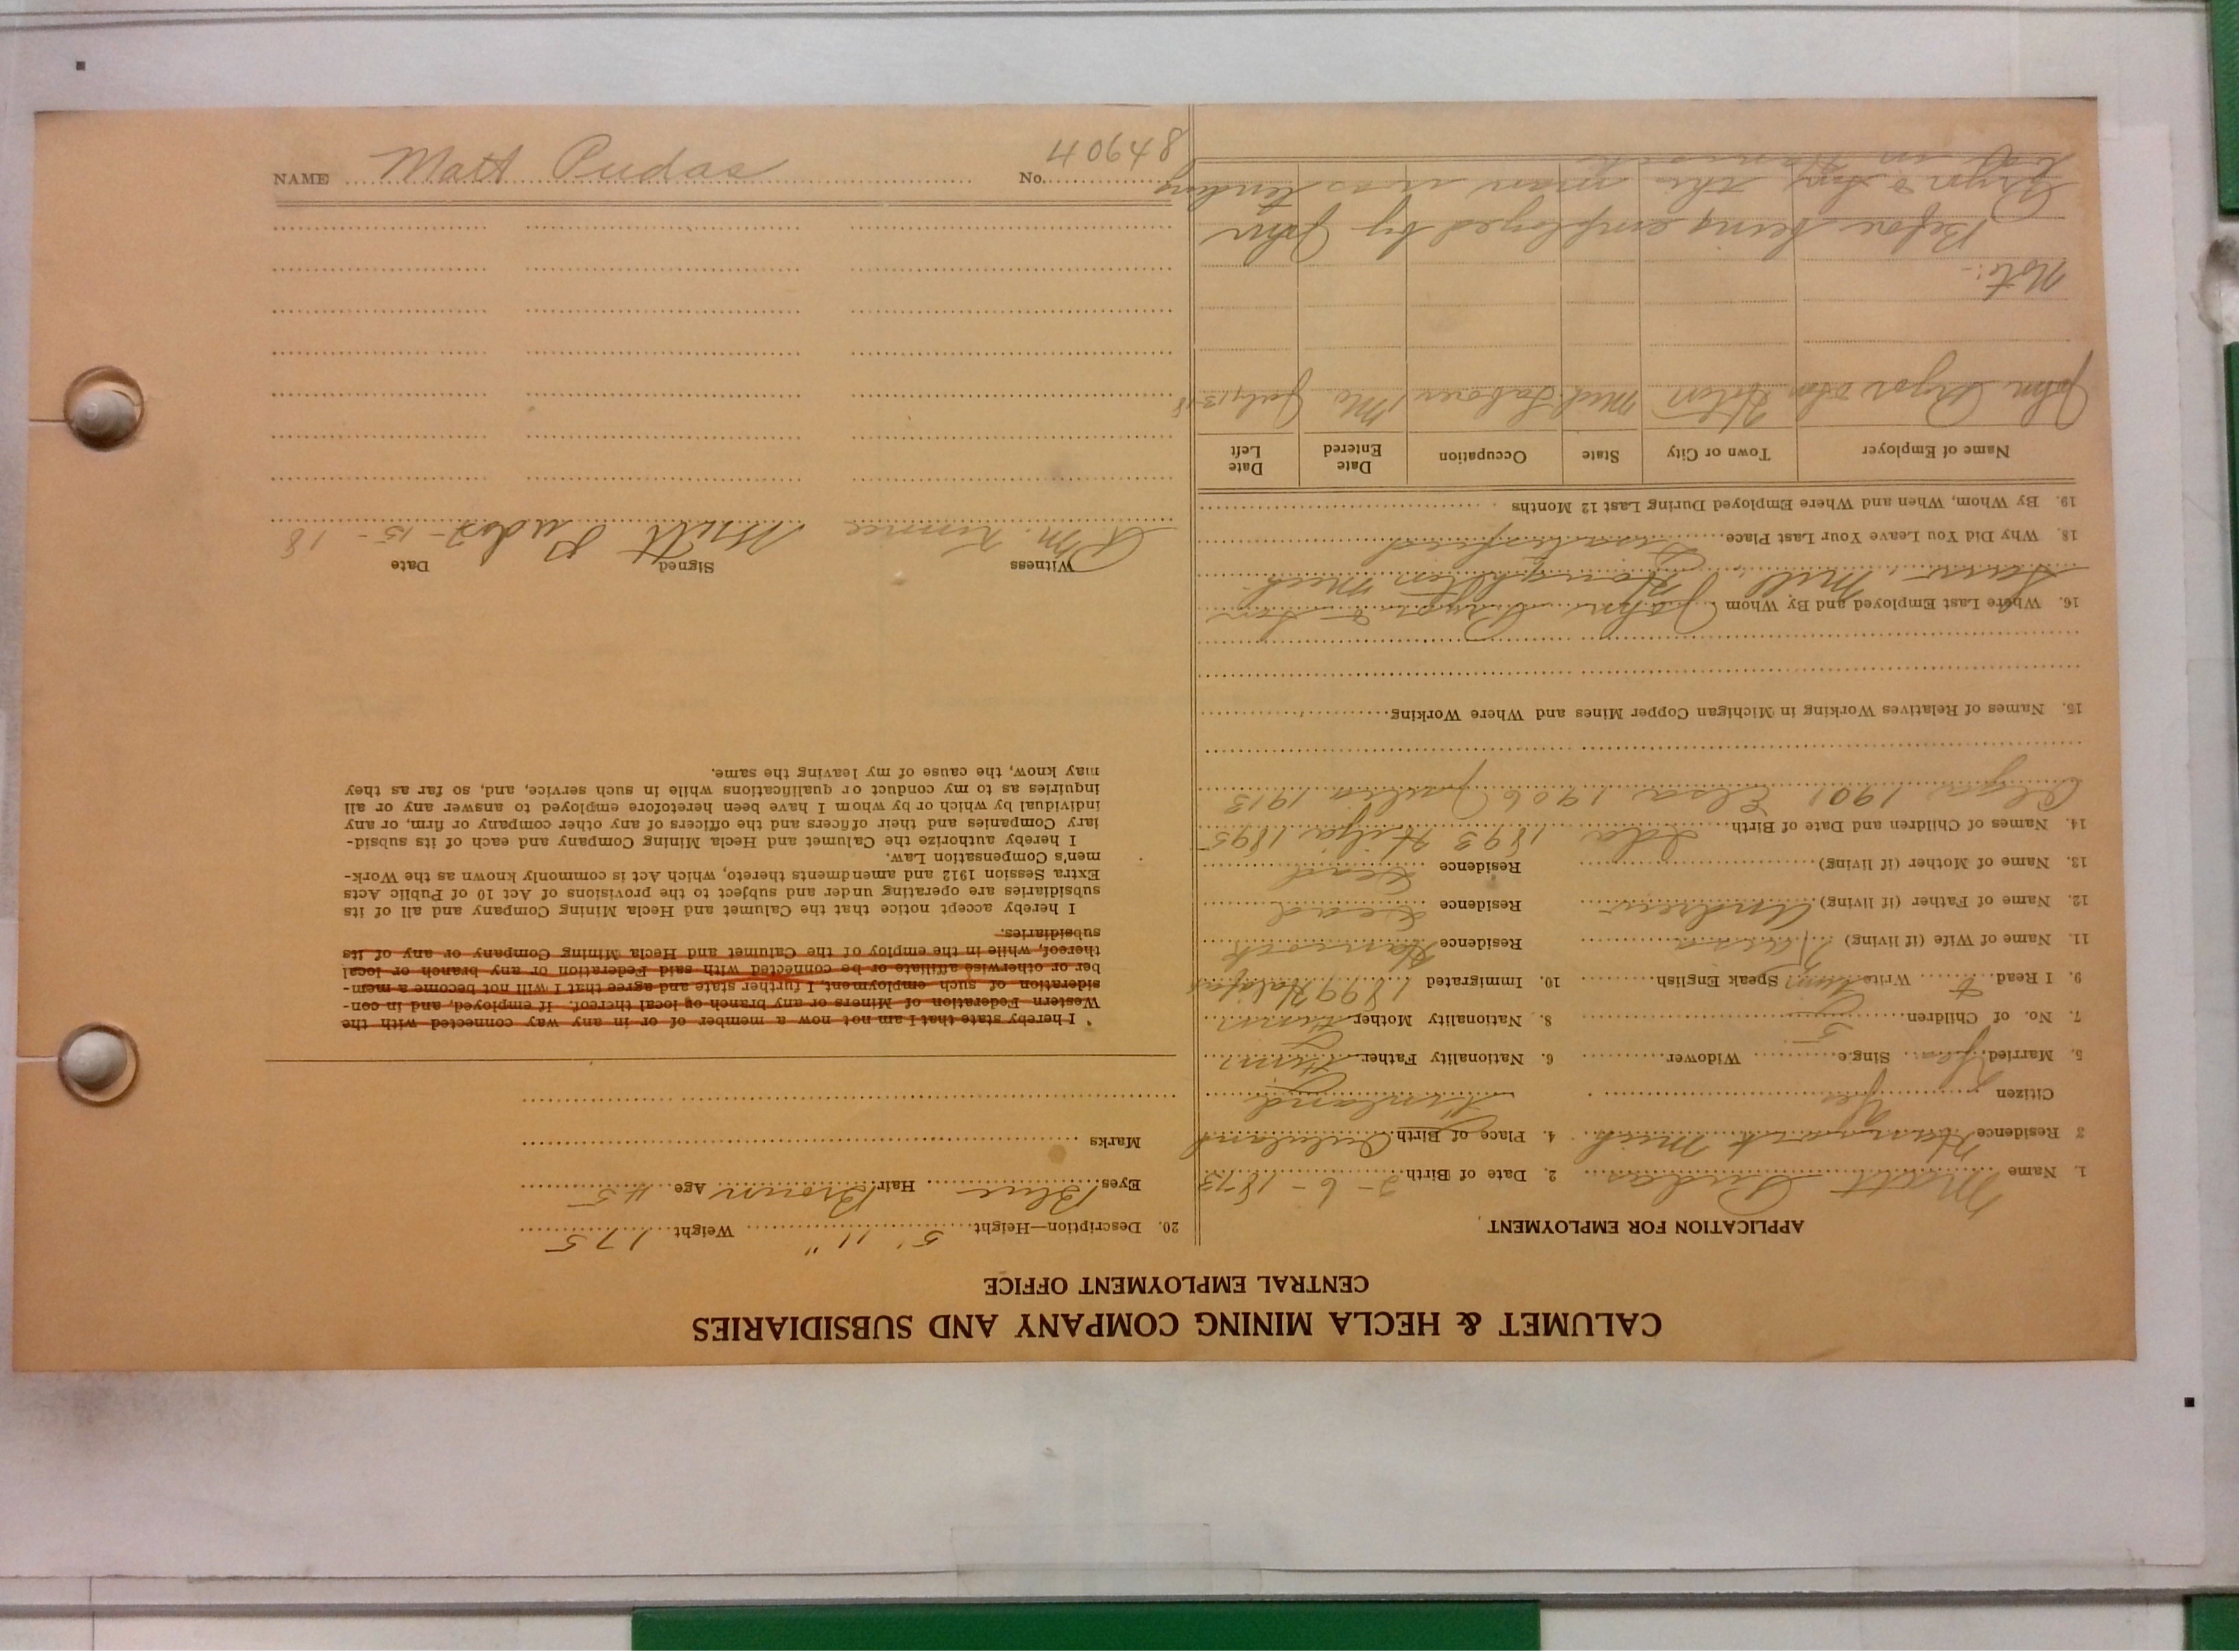 CALUMET & HECLA MINING COMPANY AND SUBSIDIARIES
CENTRAL EMPLOYMENT OFFICE
APPLICATION FOR EMPLOYMENT
1. Name Matt Pudas 2. Date of Birth 2-6-1873
3 Residence Hancock Mich 4. Place of Birth
Citizen Yes Finland
5. Married Yes Single Widower 6. Nationality Father Finn
7. No. of Children 5 8. Nationality Mother Finn
9. I Read Write Speak English 10. Immigrated 1899 Halifax
11. Name of Wife (if living) Residence Hancock
12. Name of Father (if living) Andrew Residence Dead
13. Name of Mother (if living) Residence Dead
14. Names of Children and Date of Birth Ida 1893 Hilja 1895
1901 Elsa 1906 1913
15. Names of Relatives Working in Michigan Copper Mines and Where Working
16. Where Last Employed and By Whom John Pryor & Son
Mill, Houghton Mich
18. Why Did You Leave Your Last Place Dissatisfied
19. By Whom, When and Where Employed During Last 12 Months
Name of Employer Town or City State Occupation Date Entered Date Left
John Pryor & Son Hoton Mich Laborer July 13-18
Note:-
Before being employed by John
Pryor & Son this man was tending
in Hancock
20. Description—Height 5' 11" Weight 175
Eyes Blue Hair Brown Age 45
Marks
I hereby state that I am not now a member of or in any way connected with the
Western Federation of Miners or any branch or local thereof. If employed, and in con-
sideration of such employment, I further state and agree that I will not become a mem-
ber or otherwise affiliate or be connected with said Federation or any branch or local
thereof, while in the employ of the Calumet and Hecla Mining Company or any of its
subsidiaries.
I hereby accept notice that the Calumet and Hecla Mining Company and all of its
subsidiaries are operating under and subject to the provisions of Act 10 of Public Acts
Extra Session 1912 and amendments thereto, which Act is commonly known as the Work-
men's Compensation Law.
I hereby authorize the Calumet and Hecla Mining Company and each of its subsid-
iary Companies and their officers and the officers of any other company or firm, or any
individual by which or by whom I have been heretofore employed to answer any or all
inquiries as to my conduct or qualifications while in such service, and, so far as they
may know, the cause of my leaving the same.
Witness Signed Date
Matt Pudas 7-15-18
NAME Matt Pudas No. 40648